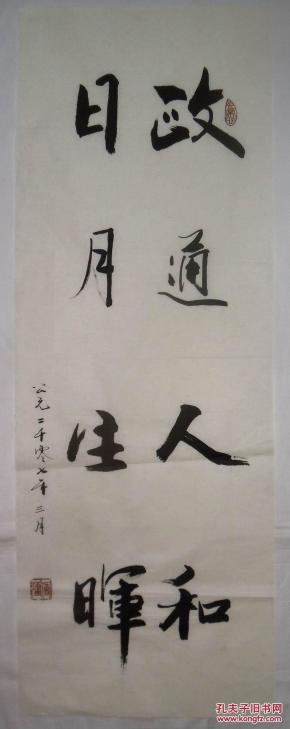 政通人和
日月生暉
公元二千零七年三月
孔夫子旧书网